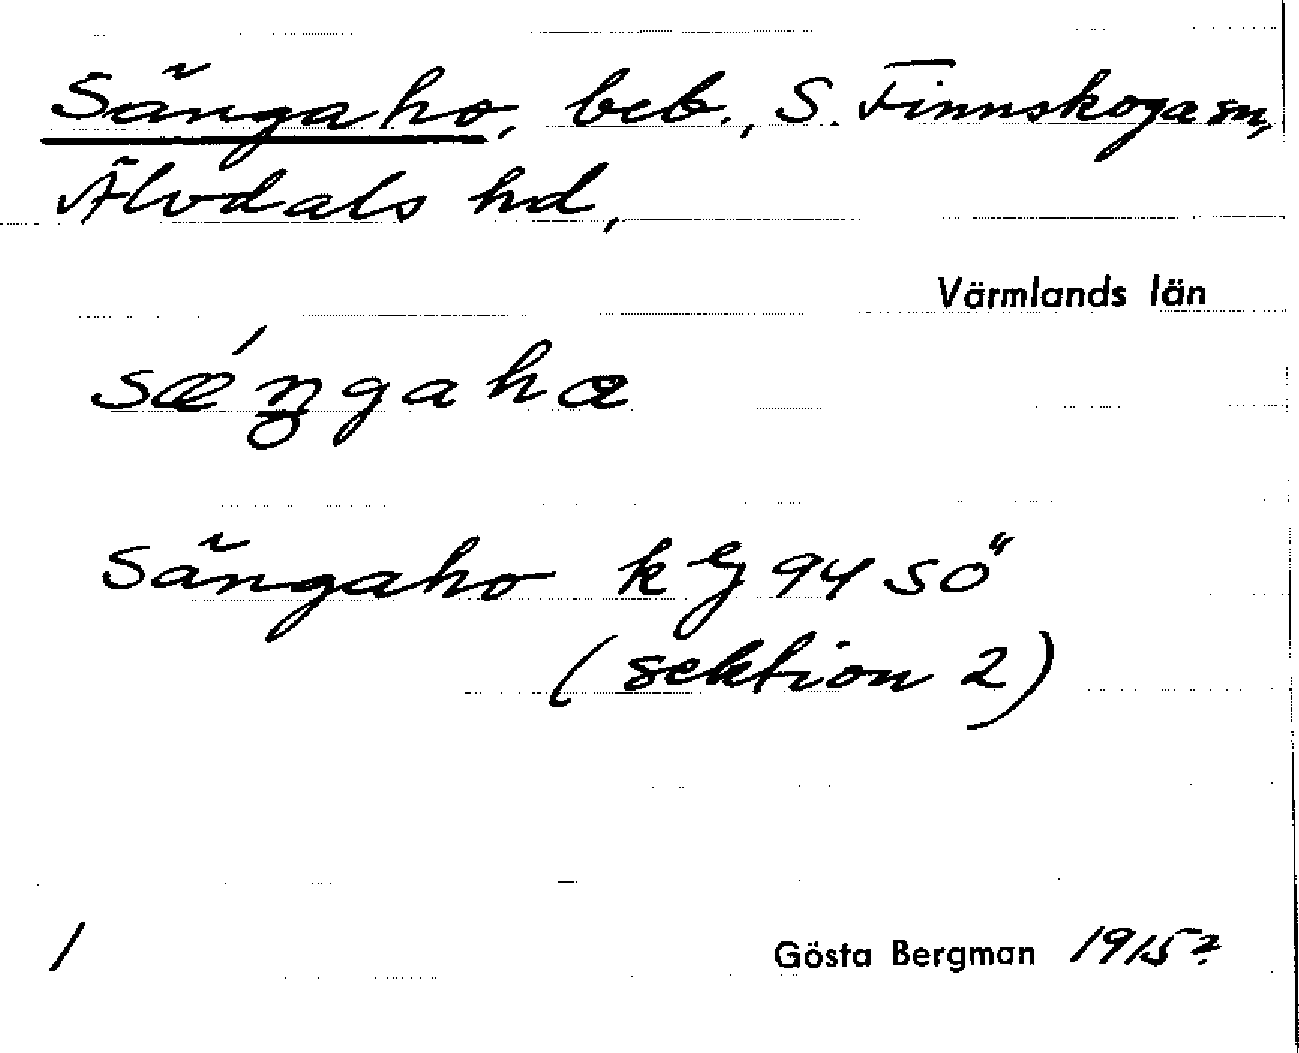 Sängaho, beb., S. Finnskoga sn,
Älvdals hd,
Värmlands län
sǽŋgahæ
Sängaho kG 94 SÖ
(sektion 2)
1
Gösta Bergman 1915?